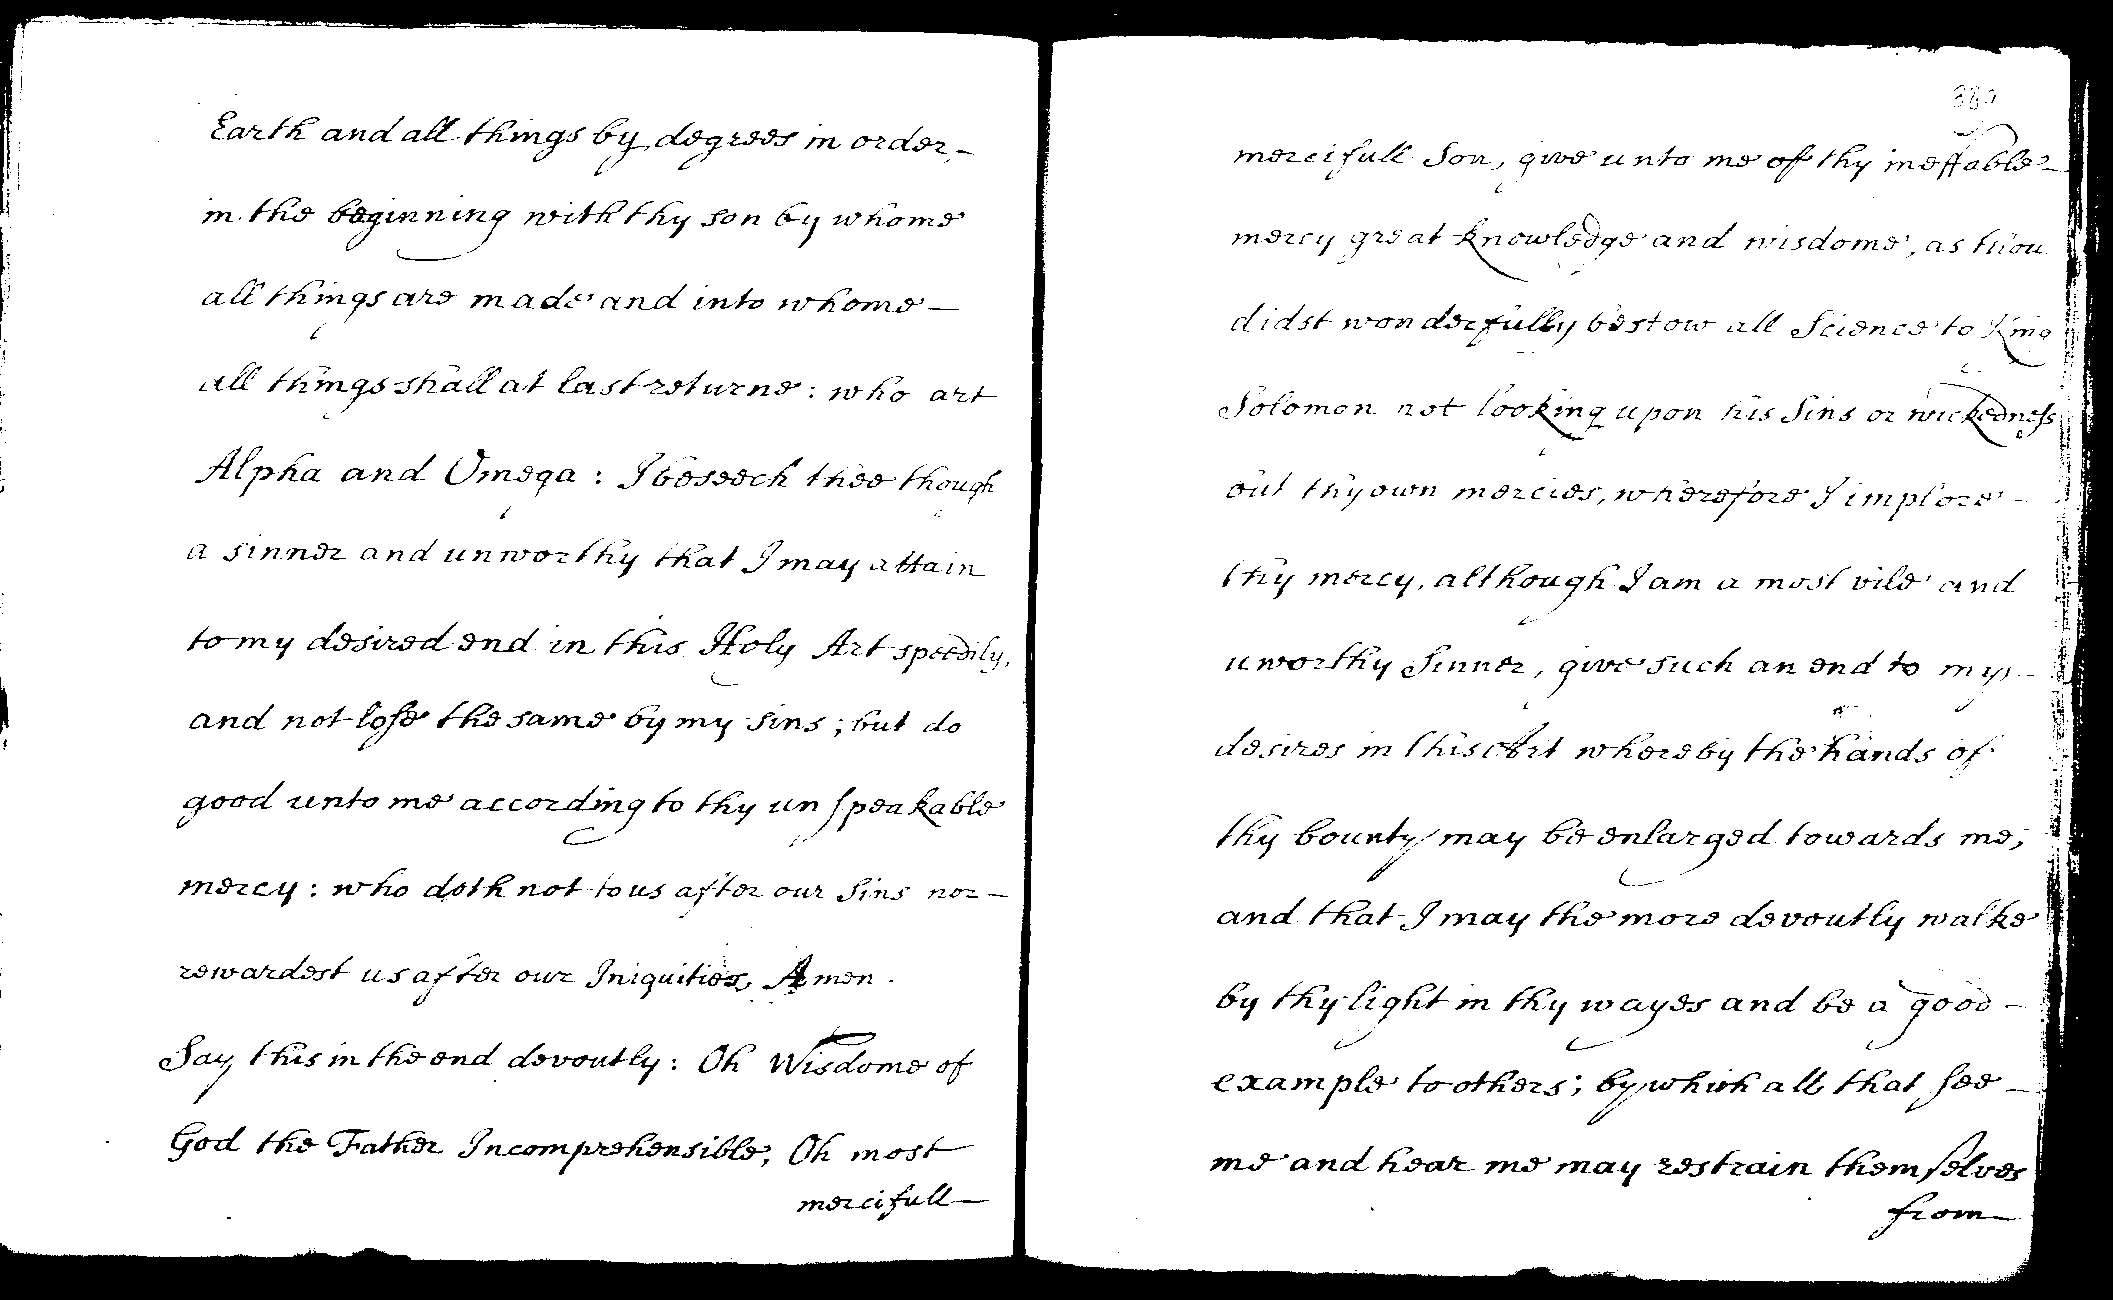 Earth and all things by degrees in order, -
in the beginning with thy son by whome
all things are made and into whome -
all things shall at last returne : who art
Alpha and Omega : I beseech thee though
a sinner and unworthy that I may attain
to my desired end in this Holy Art speedily,
and not lose the same by my sins ; but do
good unto me according to thy unspeakable
mercy : who doth not to us after our Sins nor -
rewardest us after our Iniquities, Amen .
Say this in the end devoutly : Oh Wisdome of
God the Father Incomprehensible, Oh most
mercifull -
mercifull Son, give unto me of thy ineffable -
mercy great knowledge and wisdome, as thou
didst wonderfully bestow all Science to King
Solomon not looking upon his Sins or wickedness
but thy own mercies, wherefore I implore -
thy mercy, although I am a most vile and
uworthy Sinner, give such an end to my -
desires in this Art whereby the hands of
thy bounty may be enlarged towards me,
and that I may the more devoutly walke
by thy light in thy wayes and be a good -
example to others ; by which all that see -
me and hear me may restrain themselves
from -